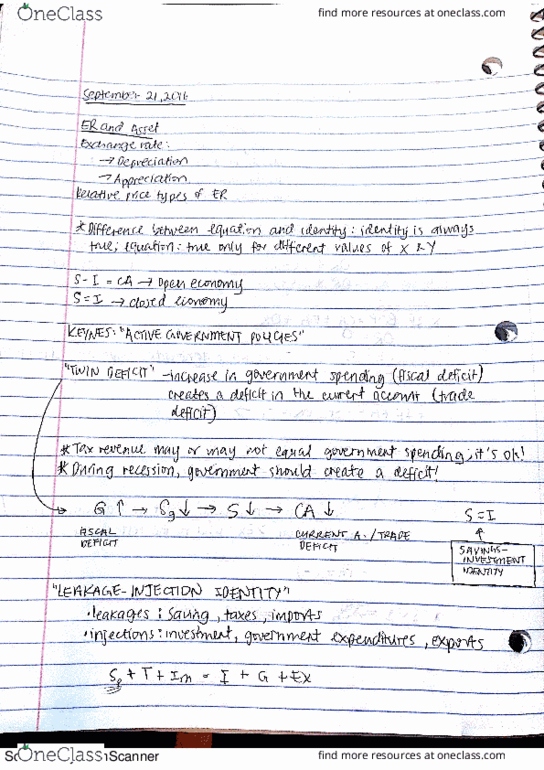 OneClass find more resources at oneclass.com
September 21, 2016
ER and Asset
Exchange rate:
→ Depreciation
→ Appreciation
Relative price types of ER
* Difference between equation and identity: identity is always
true; equation: true only for different values of X & Y
S - I = CA → Open economy
S = I → closed economy
KEYNES: "ACTIVE GOVERNMENT POLICIES"
"TWIN DEFICIT" - increase in government spending (fiscal deficit)
creates a deficit in the current account (trade
deficit)
* Tax revenue may or may not equal government spending; it's ok!
* During recession, government should create a deficit!
G ↑ → Sg ↓ → S ↓ → CA ↓
FISCAL
DEFICIT
CURRENT A. / TRADE
DEFICIT
S = I
↑
SAVINGS-
INVESTMENT
IDENTITY
"LEAKAGE-INJECTION IDENTITY"
• leakages: saving, taxes, imports
• injections: investment, government expenditures, exports
Sp + T + Im = I + G + Ex
OneClass Scanner find more resources at oneclass.com